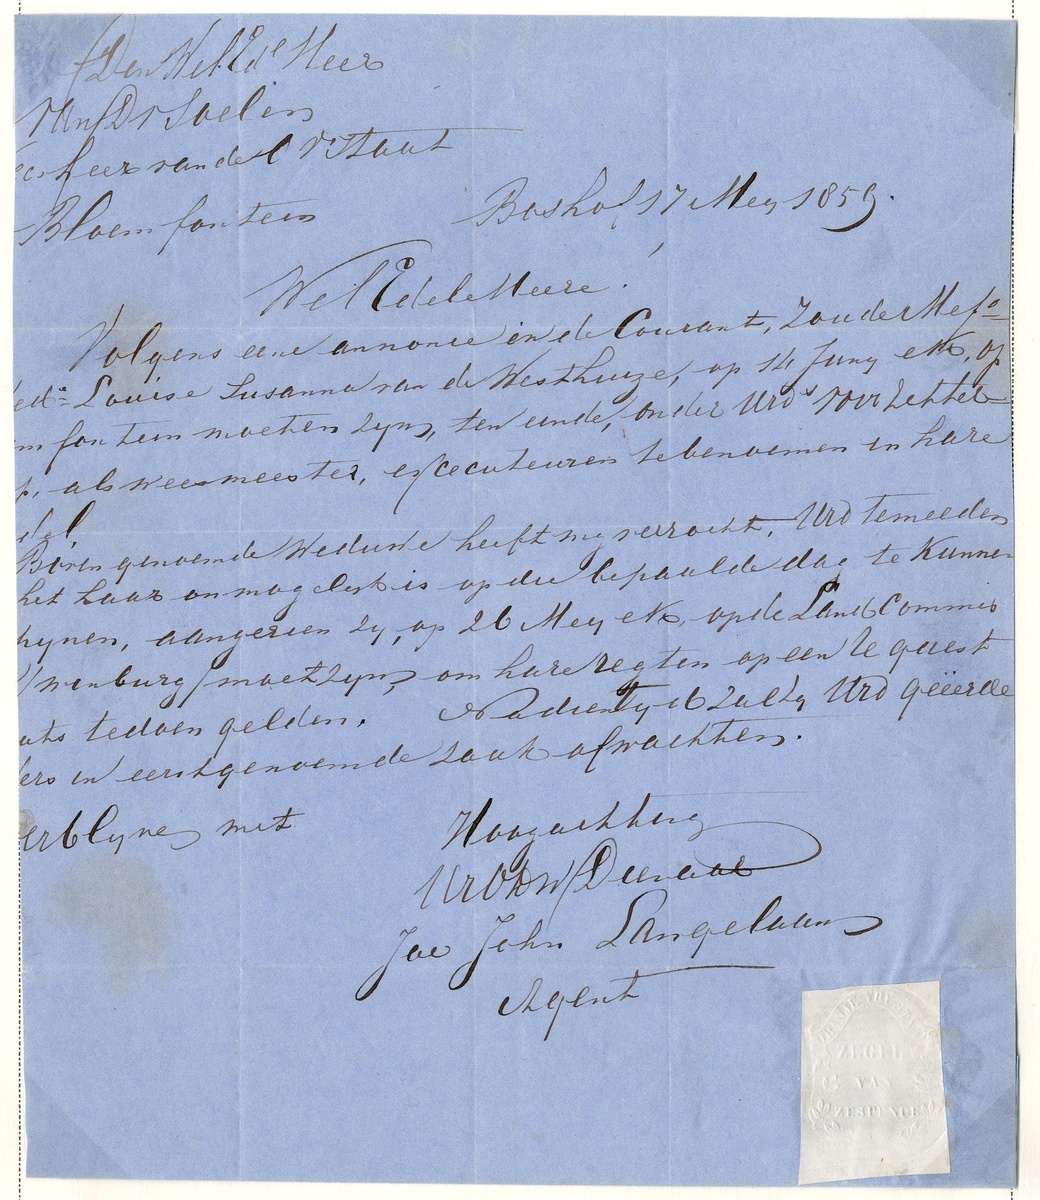 Den Wel Ed.l Heer
van Dr Soelen
heer van de O V Staat
Bloemfontein
Boshof 17 Mey 1859.
Wel Edele Heere.
Volgens eene annonce in de Courant, zoude Mejo
Louise Susanna van de Westhuize, op 14 Juny eK, op
fontein moeten zyn, ten einde, onder Urds voorzitter
p, als weesmeester, executeuren te benoemen in hare
del
Boven genoemde Weduwe heeft my verzocht, Urd temeeden
het haar onmogelyk is op die bepaalde dag te Kunnen
hynen, aangezien zy, op 26 Mey eK, op de Land Commis
Winburg moet zyn, om hare regten op een Request
ats te doen gelden. Nadien tyd zal zy Urd geëerde
ers in eerstgenoemde zaak afwachten.
erblyve met
Hoogachting
UrEdW Dienaar
Joe John Langelaan
Agent
ORANJE VRYSTAAT
ZEGEL
VAN
ZESPENCE